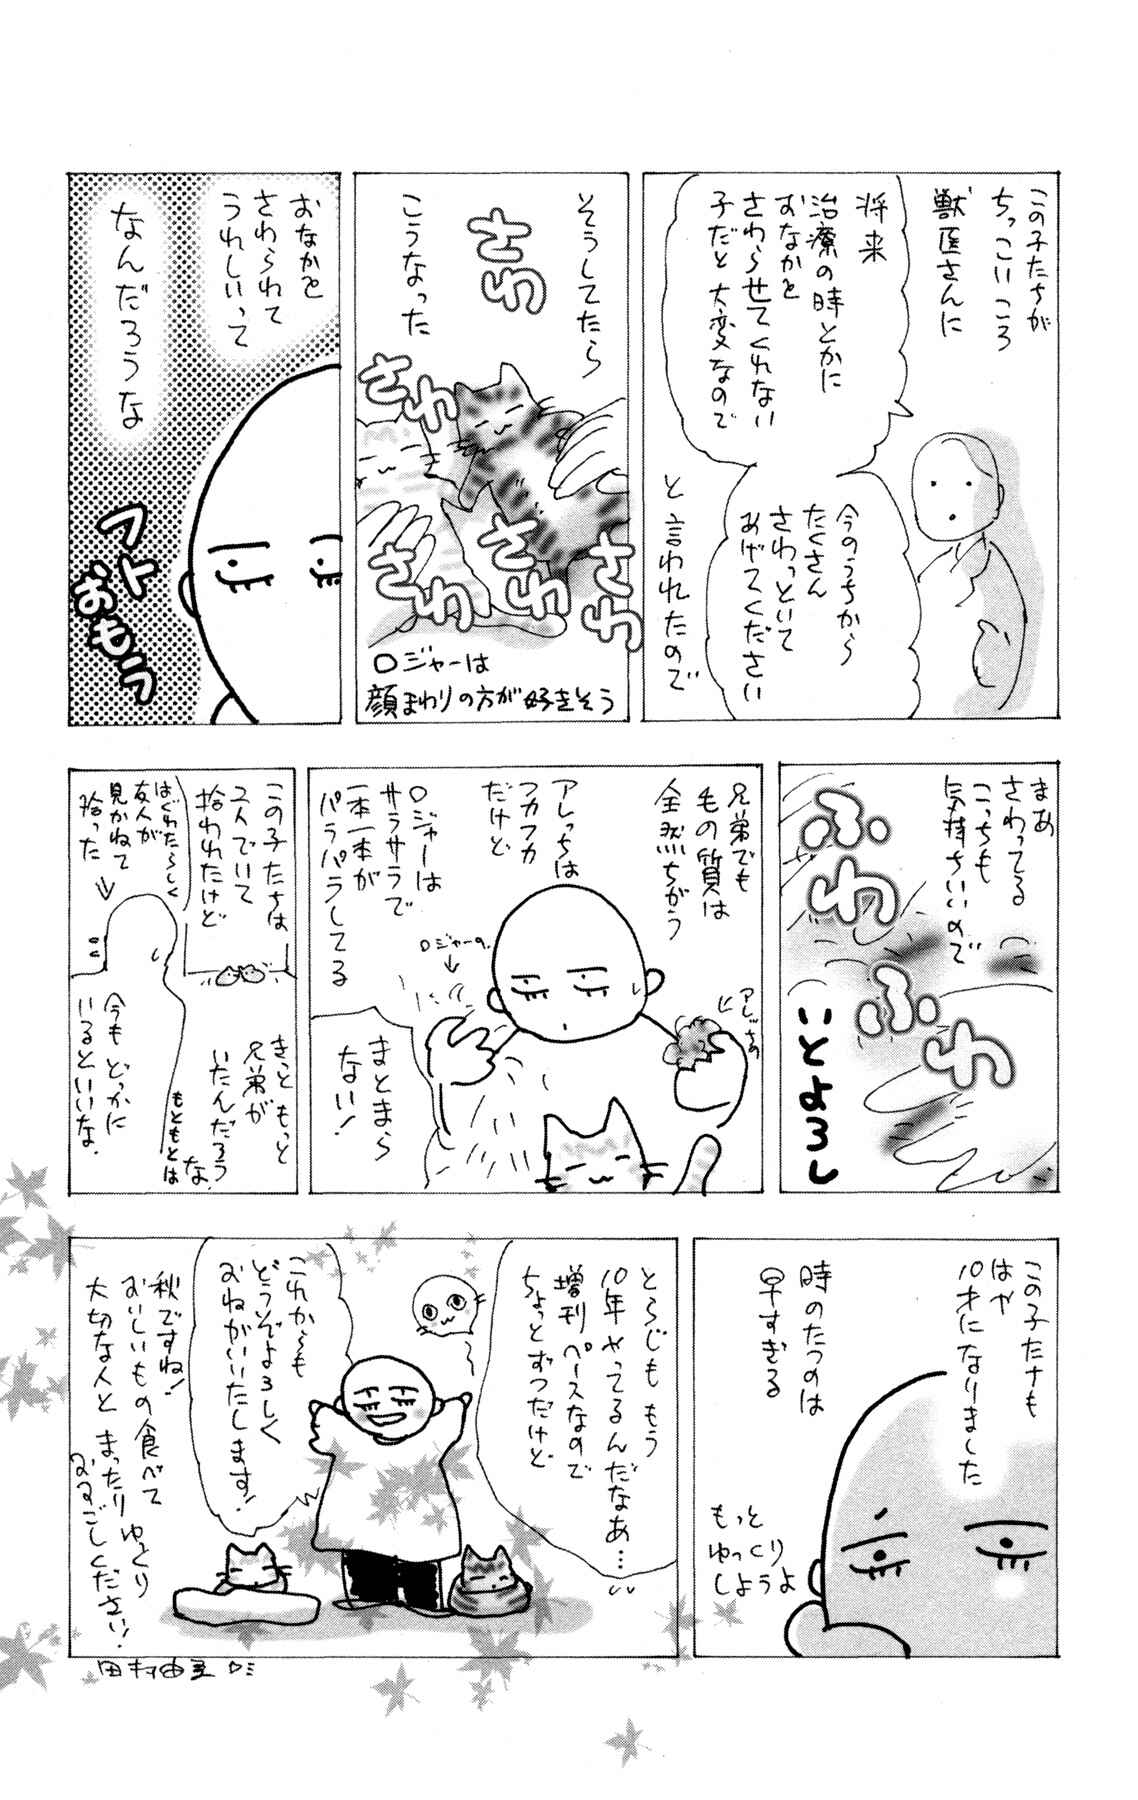 この子たちが
ちっこいころ
獣医さんに
将来
治療の時とかに
おなかを
さわらせてくれない
子だと大変なので
今のうちから
たくさん
さわっといて
あげてください
と言われたので
そうしてたら
こうなった
さわ
さわ
さわ
さわ
さわ
ロジャーは
顔まわりの方が好きそう
おなかを
さわられて
うれしいって
なんだろうな
フト
おもう
まあ
さわってる
こっちも
気持ちいいので
ふわ
ふわ
いとよろし
兄弟でも
毛の質は
全然ちがう
アレっちは
フカフカ
だけど
ロジャーは
サラサラで
一本一本が
パラパラしてる
アレっちの
ロジャーの
まとまら
ない!
この子たちは
2人でいて
拾われたけど
はぐれたらしく
友人が
見かねて
拾った
きっともっと
兄弟が
いたんだろう
な
もともとは
今もどっかに
いるといいな
この子たちも
はや
10才になりました
時のたつのは
早すぎる
もっと
ゆっくり
しようよ
とらじももう
10年やってるんだなあ…
増刊ペースなので
ちょっとずつだけど
これからも
どうぞよろしく
おねがいいたします!
秋ですね!
おいしいもの食べて
大切な人とまったりゆっくり
おすごしください!
田村由美